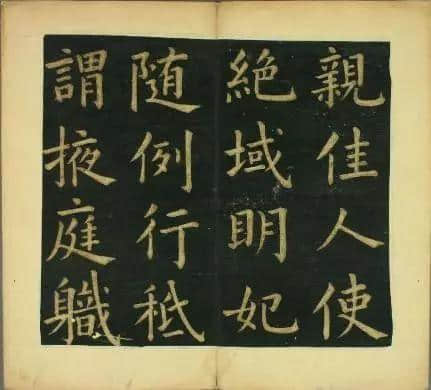 親佳人使
絕域明妃
随例行秪
謂掖庭軄